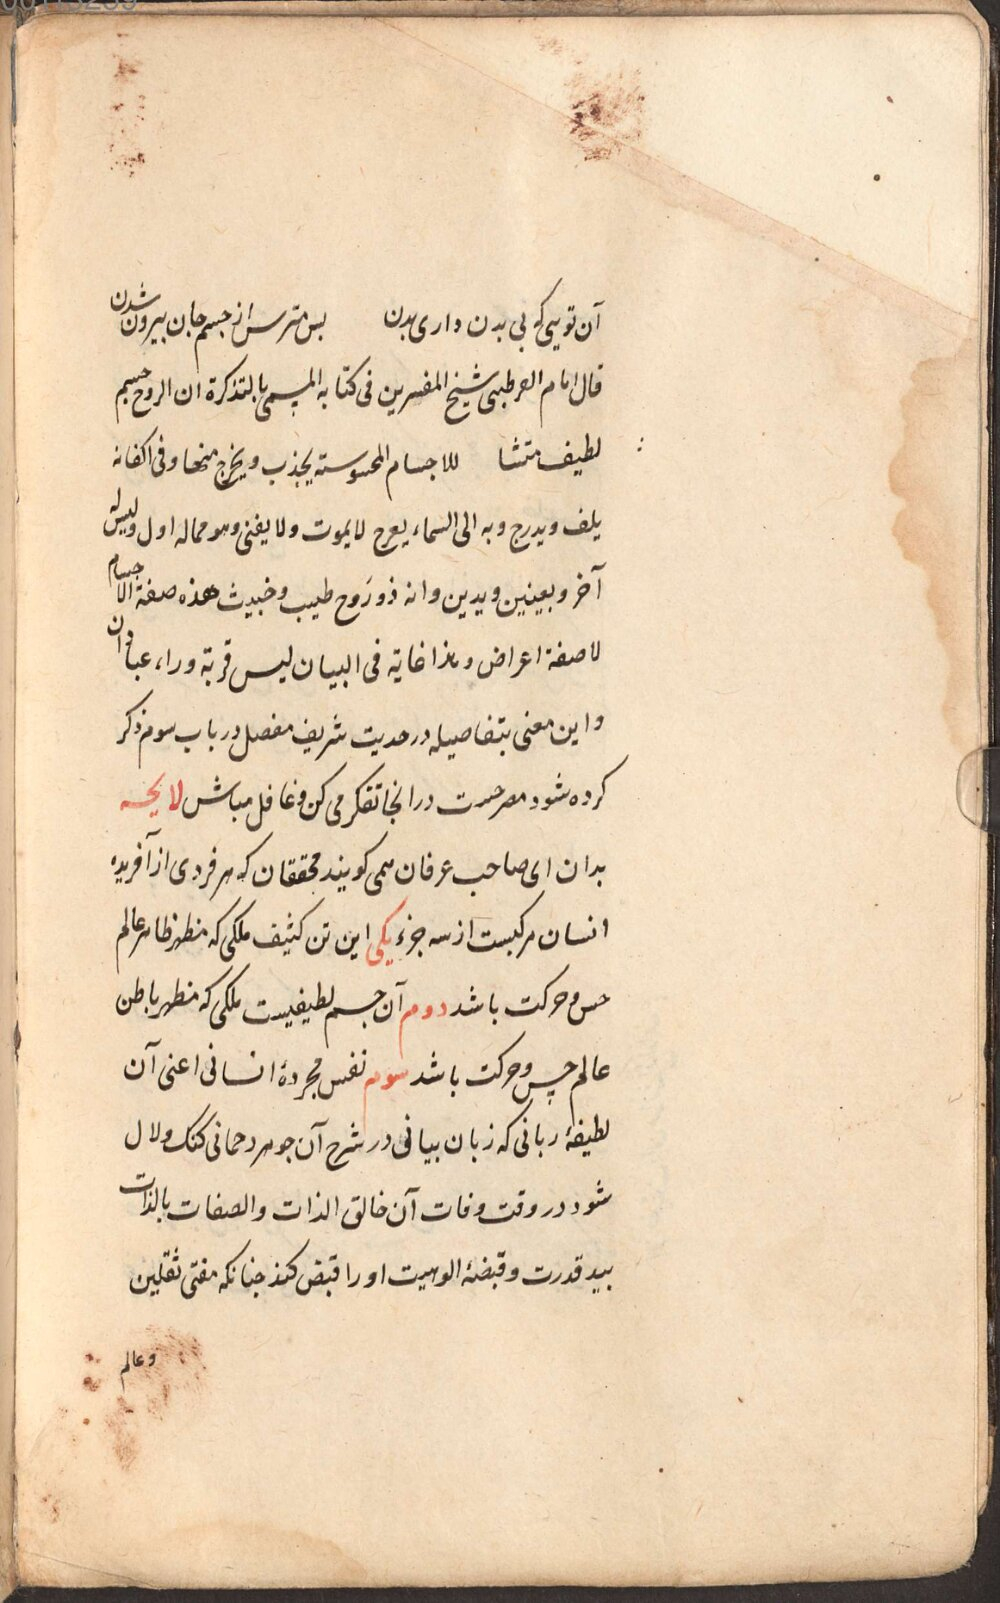 آن تویی که بی بدن داری بدن    بس مترس از جسم جان بیرون شدن
قال امام القرطبی شیخ المفسرین فی کتابه المسمی بالتذکرة ان الروح جسم
لطیف متشا للاجسام المحسوسة یجذب ویخرج منها وفی اکفانه
یلف ویدرج وبه الی السماء یعرج لا یموت ولا یفنی وهو مماله اول ولیس له
آخر وبعینین ویدین وانه ذو رَوح طیب وخبیث هذه صفة الاجسام
لا صفة اعراض وماذا غایة فی البیان لیس قربة وراء عبادان
و این معنی بتفاصیله در حدیت شریف مفصل در باب سوم ذکر
کرده شود مصرحت در انجا تفکر می کن وغافل مباش لایحه
بدان ای صاحب عرفان همی کویند محققان که هر فردی از آفریدهٔ
انسان مرکبست از سه جزء یکی این تن کثیف ملکی که منظهر ظاهر عالم
حس وحرکت باشد دوم آن جسم لطیفیست ملکی که منظهر باطن
عالم حس وحرکت باشد سوم نفس مجردهٔ انسانی اعنی آن
لطیفهٔ ربانی که زبان بیانی در شرح آن جوهر رحمانی کنک ولال
شود در وقت وفات آن خالق الذات والصفات بالذات
بید قدرت وقبضهٔ الوهیت او را قبض کند جنانکه مفتی ثقلین
وعالم